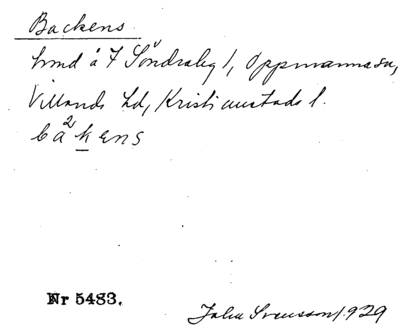 Backens
hmd å 7 Söndraby 1, Oppmanna sn,
Villands hd, Kristianstads l.
ba²kens
Nr 5483.
John Svensson 1929